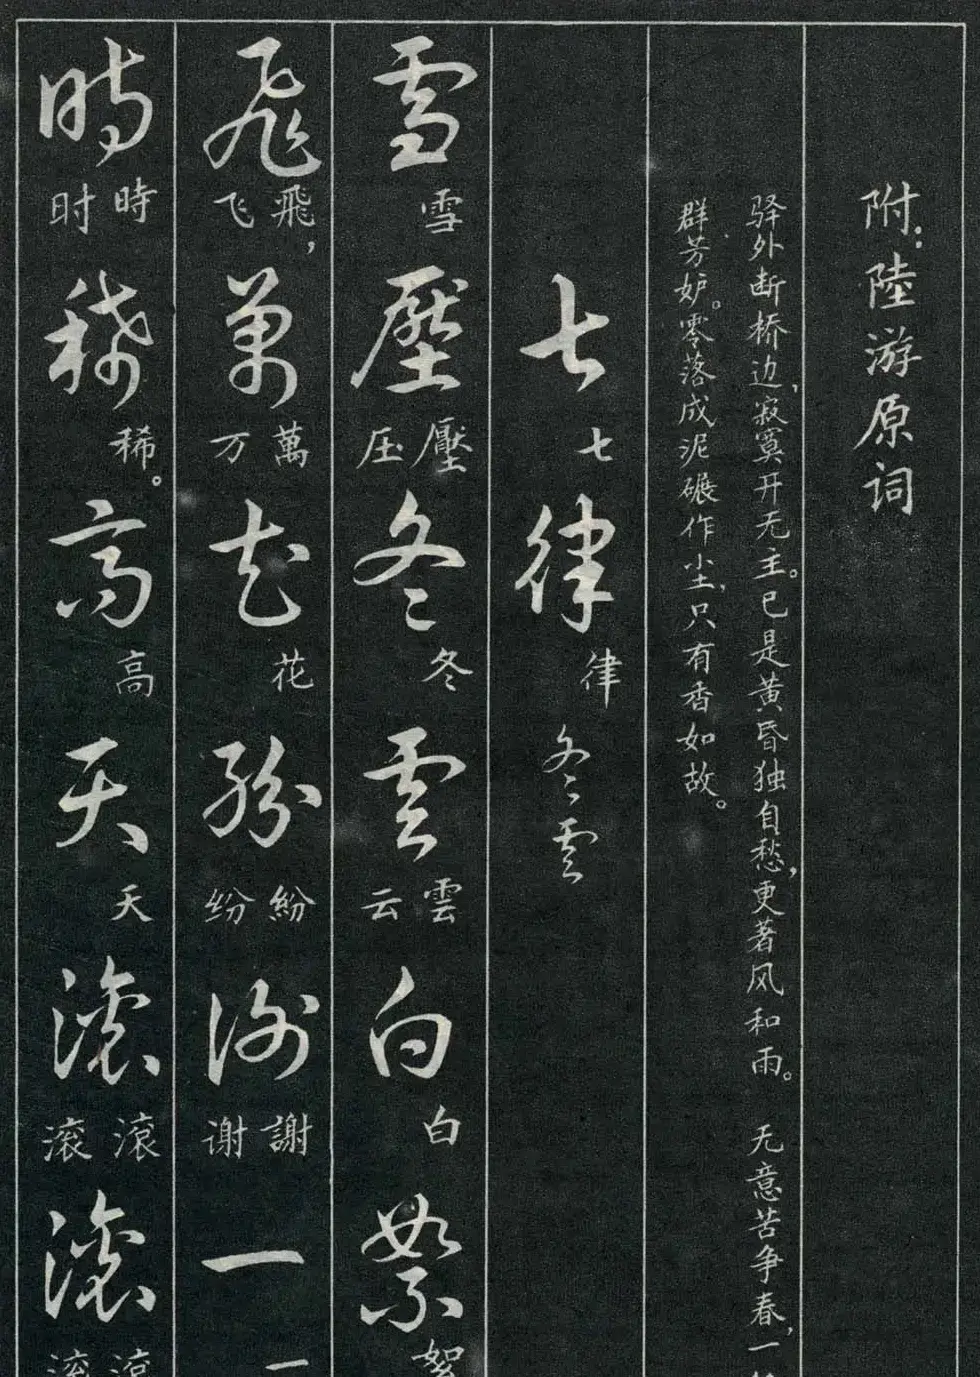 附：陸游原词
驿外断桥边，寂寞开无主。已是黄昏独自愁，更著风和雨。 无意苦争春，一
群芳妒。零落成泥碾作尘，只有香如故。
七 律
七 律 冬雲
雪 壓 冬 雲 白 絮
雪 壓 压 冬 雲 云 白 絮
飛 萬 花 紛 謝 一
飛， 飞 萬 万 花 紛 纷 謝 谢 一
時 稀 高 天 滾 滾
時 时 稀。 高 天 滾 滚 滾 滚